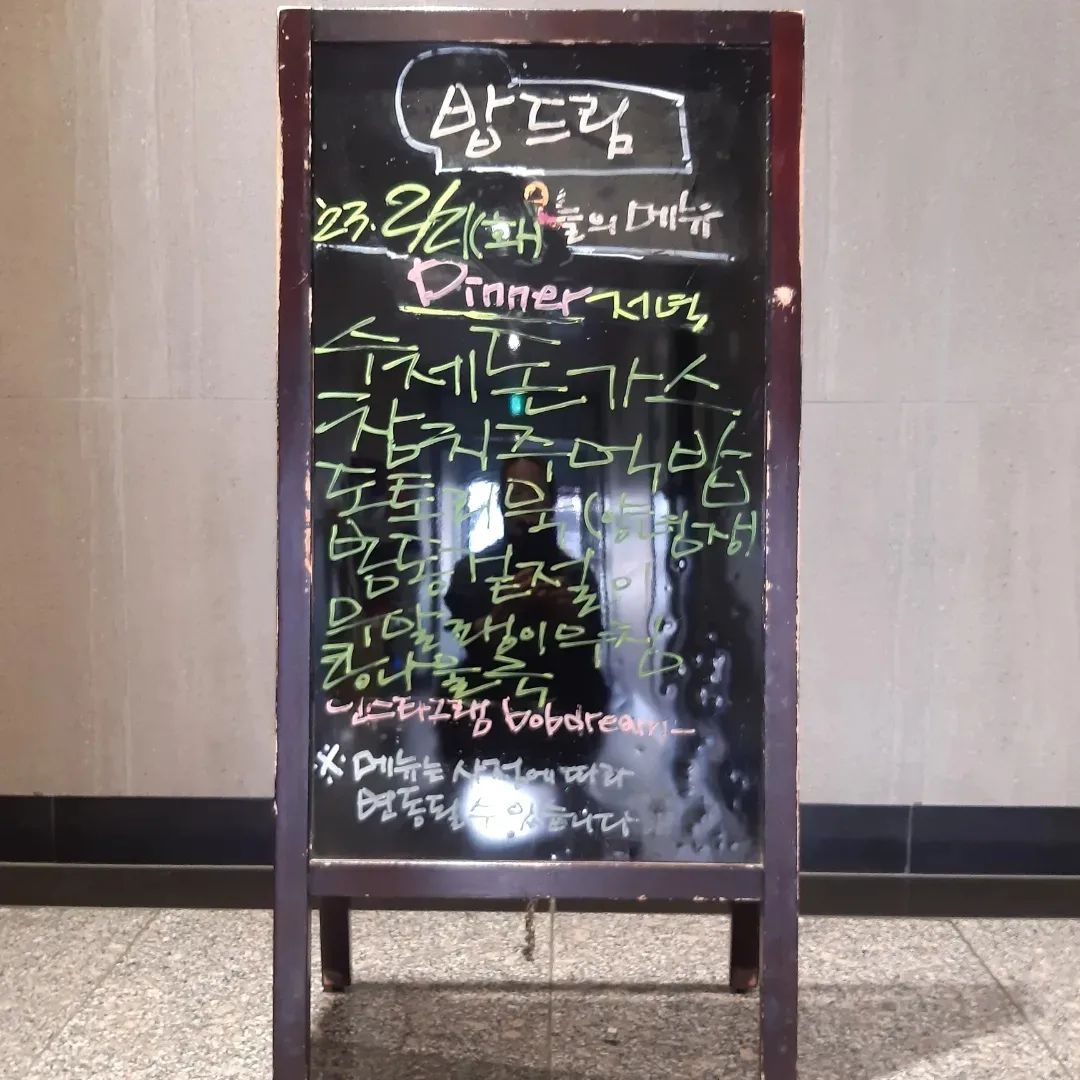 밥드림
'23. 2/21(화) 오늘의 메뉴
Dinner 저녁
수제돈가스
참치주먹밥
도토리묵(양념장)
봄동겉절이
무말랭이무침
콩나물국
-인스타그램 bobdream-
※ 메뉴는 사정에 따라
변동될 수 있습니다